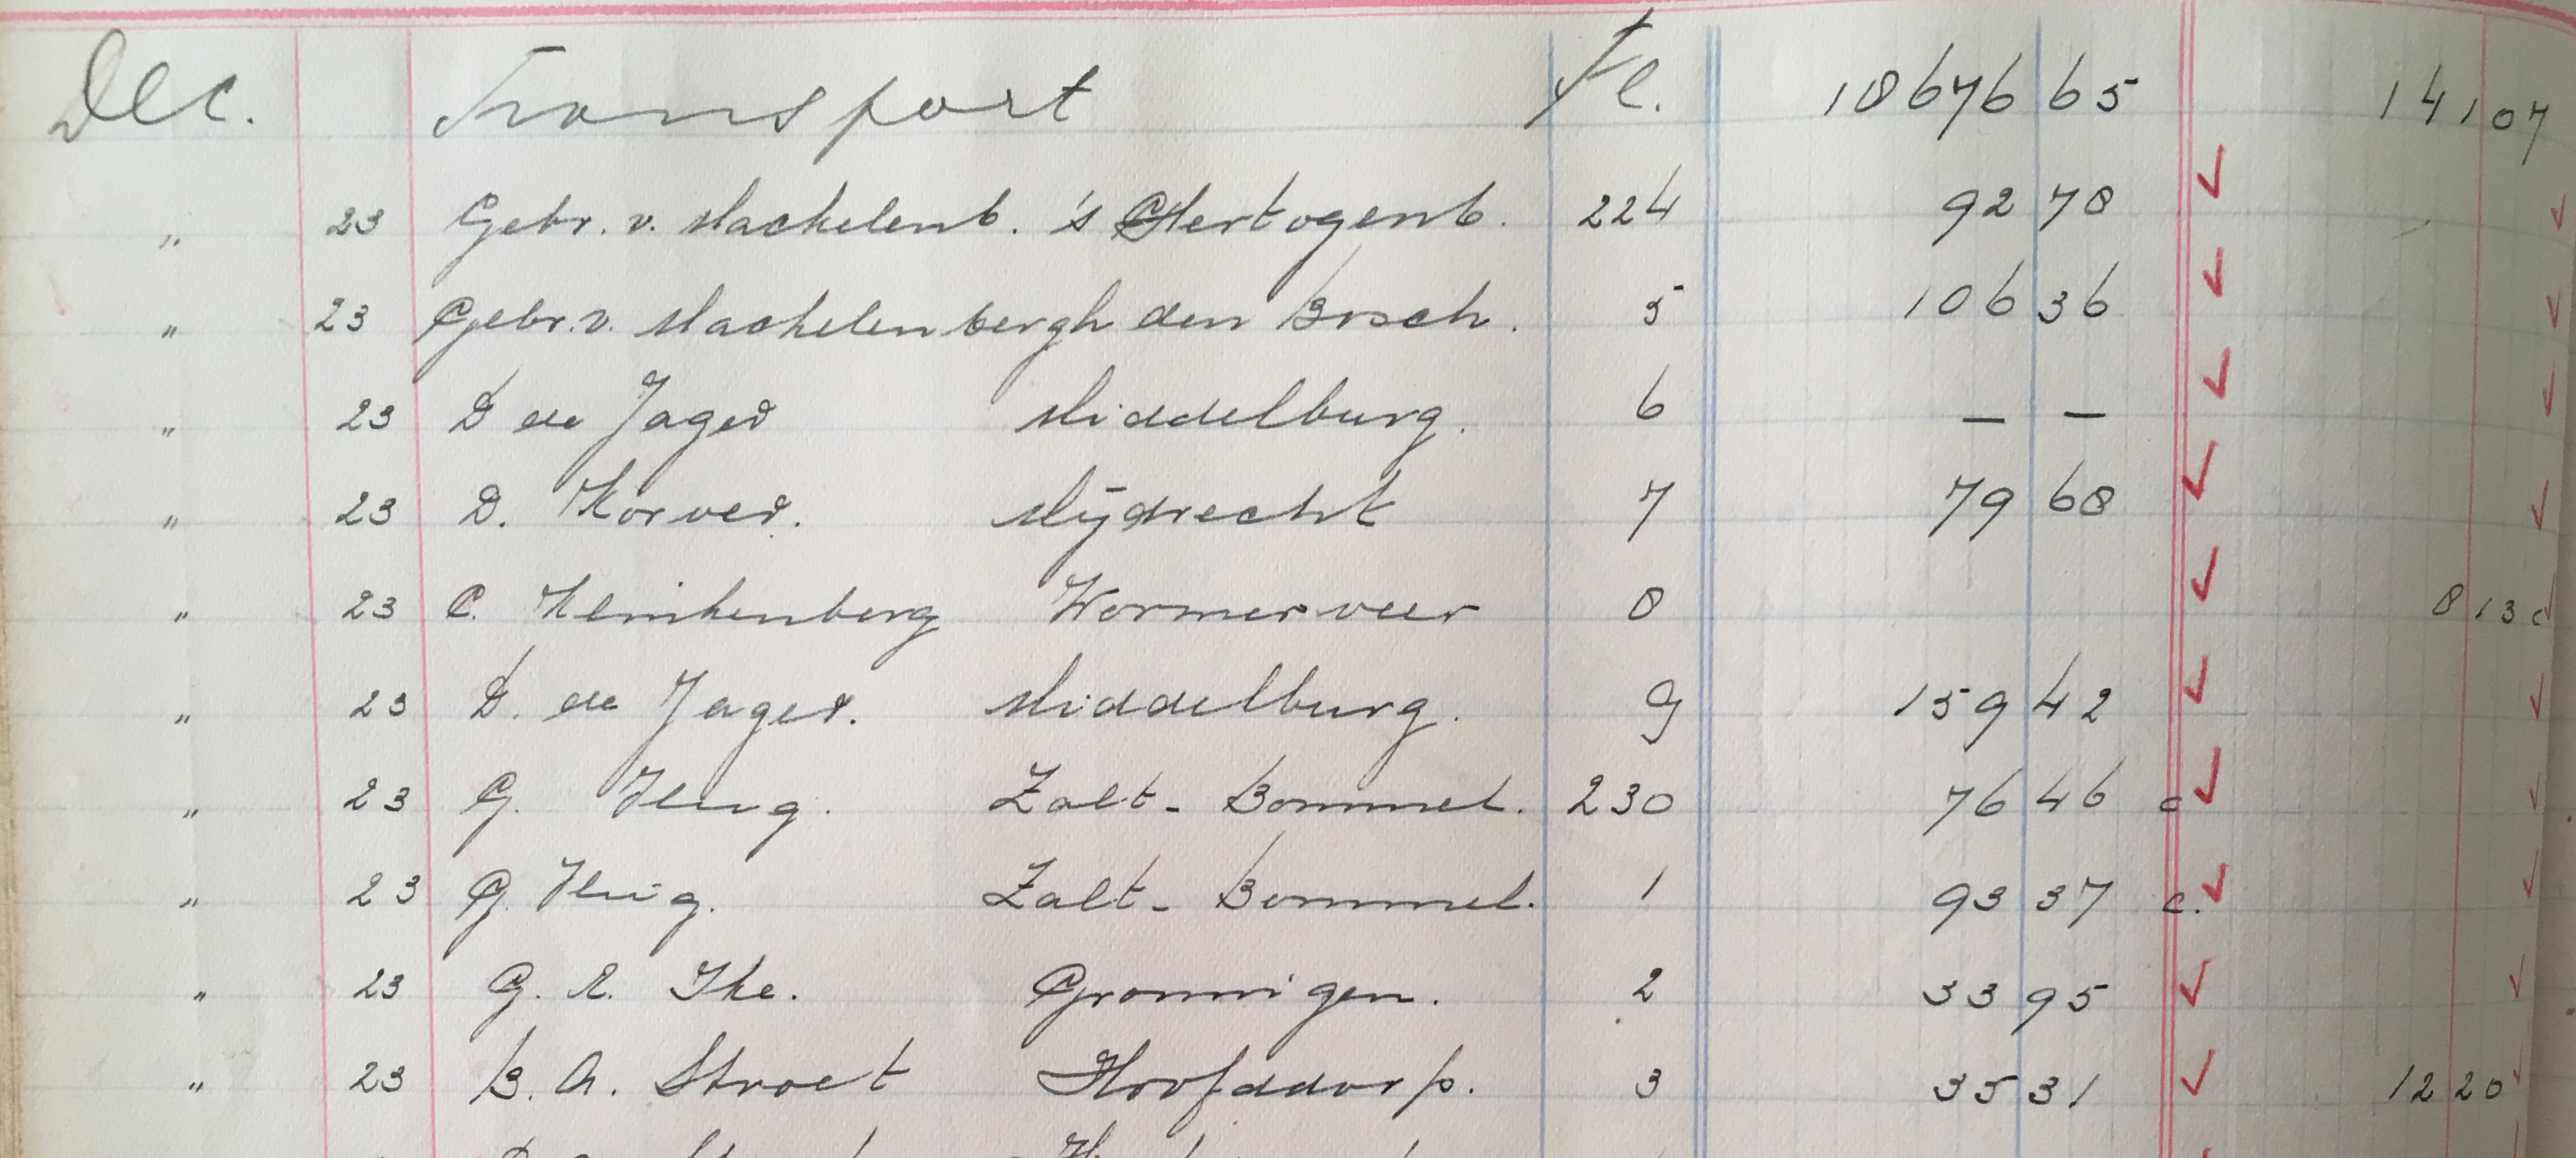 Dec. Transport Fl. 18676 65 141 07
" 23 Gebr. v. Mackelenb. 's Hertogenb. 224 92 78
" 23 Gebr. v. Mackelenbergh den Bosch. 5 106 36
" 23 D de Jager Middelburg. 6 — —
" 23 D. Korver. Mijdrecht 7 79 68
" 23 C. Klinkenberg Wormerveer 8 8 13 c
" 23 D. de Jager. Middelburg. 9 159 42
" 23 G. Zalt- Bommel. 230 76 46 c
" 23 G. Zalt- Bommel. 1 93 37 c.
" 23 G. R. Ike. Gronningen. 2 33 95
" 23 B. A. Stroet Hoofddorp. 3 35 31 12 20